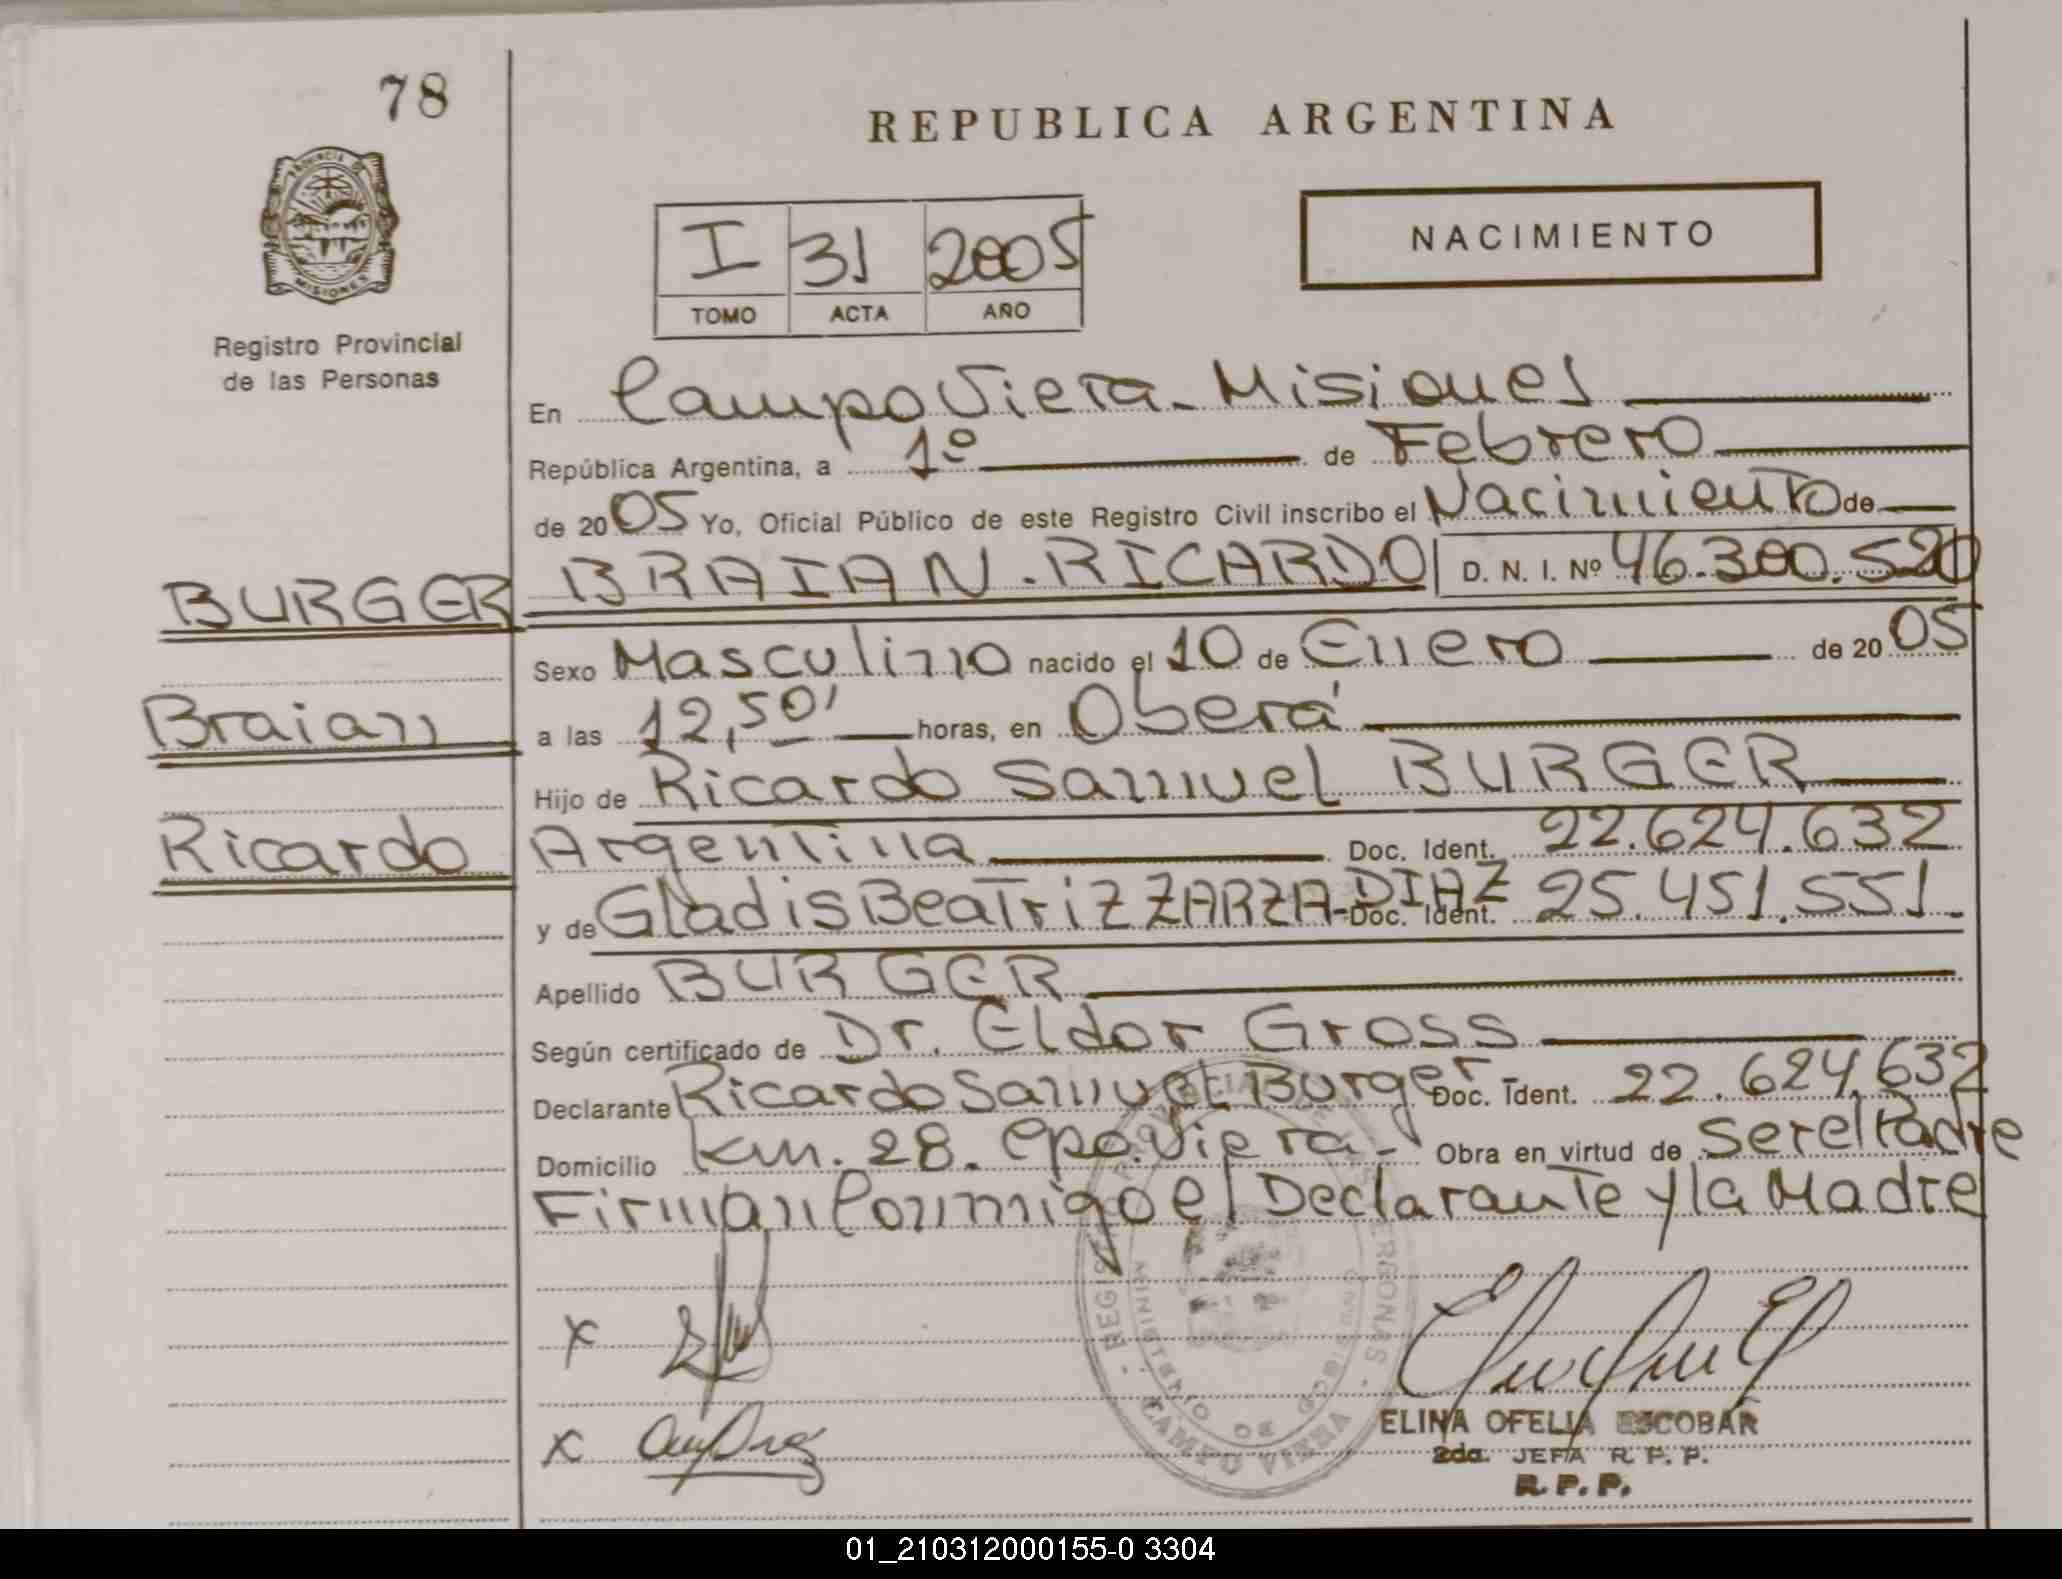 78
REPUBLICA ARGENTINA
PROVINCIA DE
MISIONES
Registro Provincial
de las Personas
I 31 2005
TOMO ACTA AÑO
NACIMIENTO
En Campo Viera - Misiones
República Argentina, a 1º de Febrero
de 2005 Yo, Oficial Público de este Registro Civil inscribo el Nacimiento de
BURGER BRAIAN - RICARDO D. N. I. Nº 46.300.520
Sexo Masculino nacido el 10 de Enero de 2005
Braian a las 12,50' horas, en Oberá
Hijo de Ricardo Samuel BURGER
Ricardo Argentina Doc. Ident. 22.624.632
y de Gladis Beatriz ZARZA-DIAZ Doc. Ident. 25.451.551.
Apellido BURGER
Según certificado de Dr. Eldor Gross
Declarante Ricardo Samuel Burger- Doc. Ident. 22.624.632
Domicilio km. 28. Cpo. Viera- Obra en virtud de ser el Padre
Firman Conmigo el Declarante y la Madre
x
x
REGISTRO PROVINCIAL DE LAS PERSONAS
MINISTERIO DE GOBIERNO
CAMPO VIERA
ELINA OFELIA ESCOBAR
2da. JEFA R. P. P.
R. P. P.
01_210312000155-0 3304